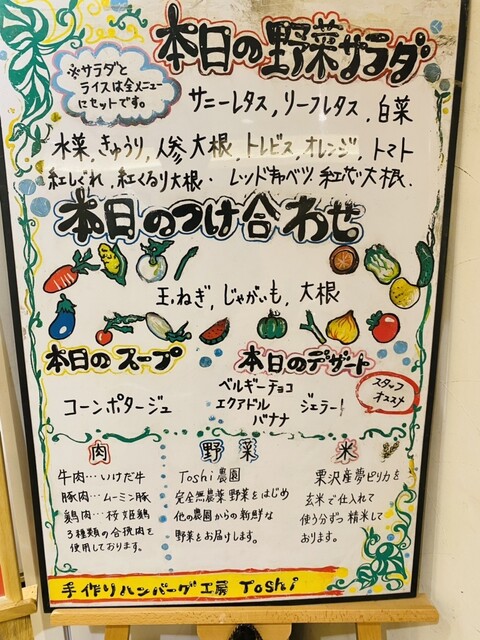 本日の野菜サラダ
※サラダと
ライスは全メニュー
にセットです。
サニーレタス,リーフレタス,白菜
水菜,きゅうり,人参,大根,トレビス,オレンジ,トマト
紅しぐれ,紅くるり大根・レッドキャベツ,紅芯大根.
本日のつけ合わせ
玉ねぎ,じゃがいも,大根
本日のスープ
コーンポタージュ
本日のデザート
ベルギーチョコ
エクアドル
バナナ
ジェラート
スタッフ
オススメ
肉
牛肉…いけだ牛
豚肉…ムーミン豚
鶏肉…桜姫鶏
3種類の合挽肉を
使用しております。
野菜
Toshi農園
完全無農薬野菜をはじめ
他の農園からの新鮮な
野菜をお届します。
米
栗沢産夢ピリカを
玄米で仕入れて
使う分ずつ精米して
おります。
手作りハンバーグ工房 Toshi